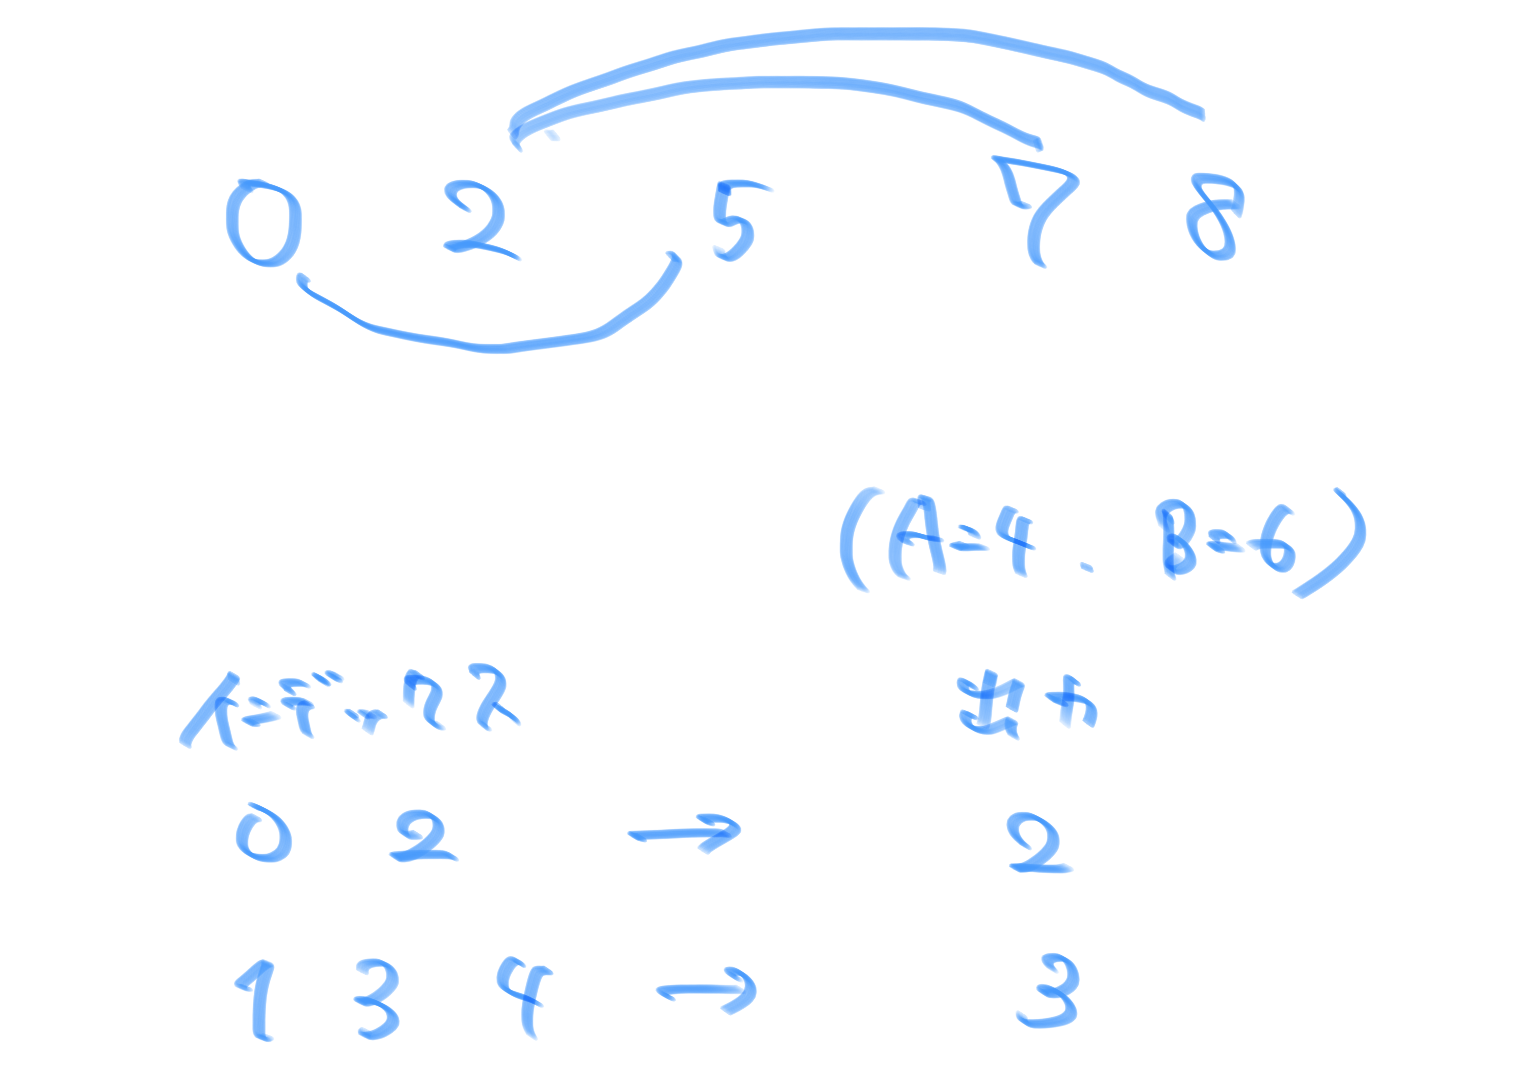 0 2 5 7 8
(A=4. B=6)
インデックス 出力
0 2 → 2
1 3 4 → 3